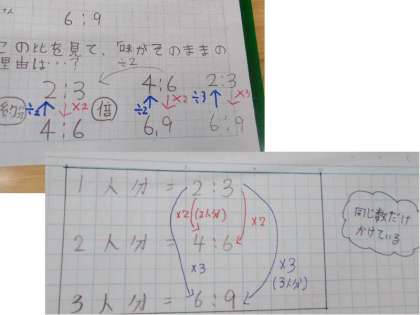 6:9
この比を見て、味がそのままの
理由は…?
÷2
2:3 4:6 2:3
約分 ÷2 ×2 倍 ÷2 ×2 ÷3 ×3
4:6 6,9 6:9
1人分 = 2:3
×2 (2人分) ×2
同じ数だけ
かけている
2人分 = 4:6
×3 ×3
(3人分)
3人分 = 6:9